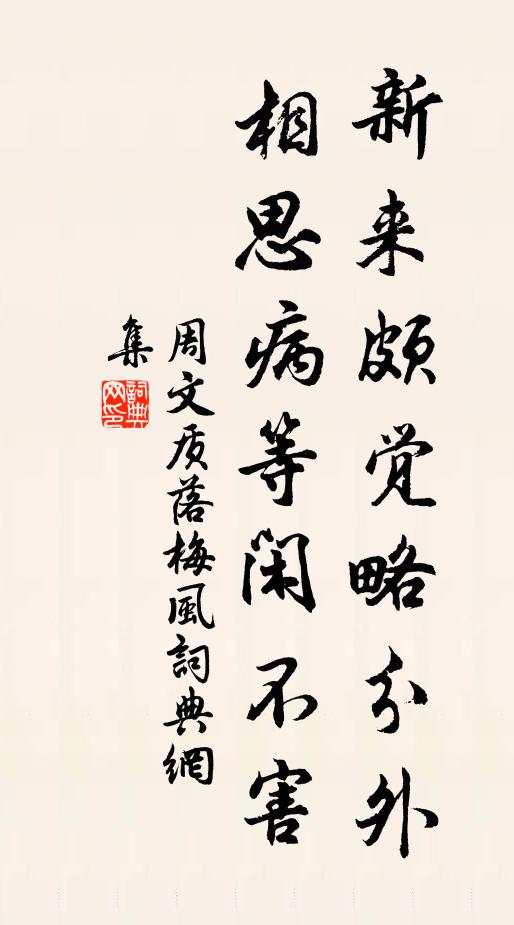 新来颇觉略分外
相思病等闲不害
周文质落梅风詞典網
集
詞典
网印